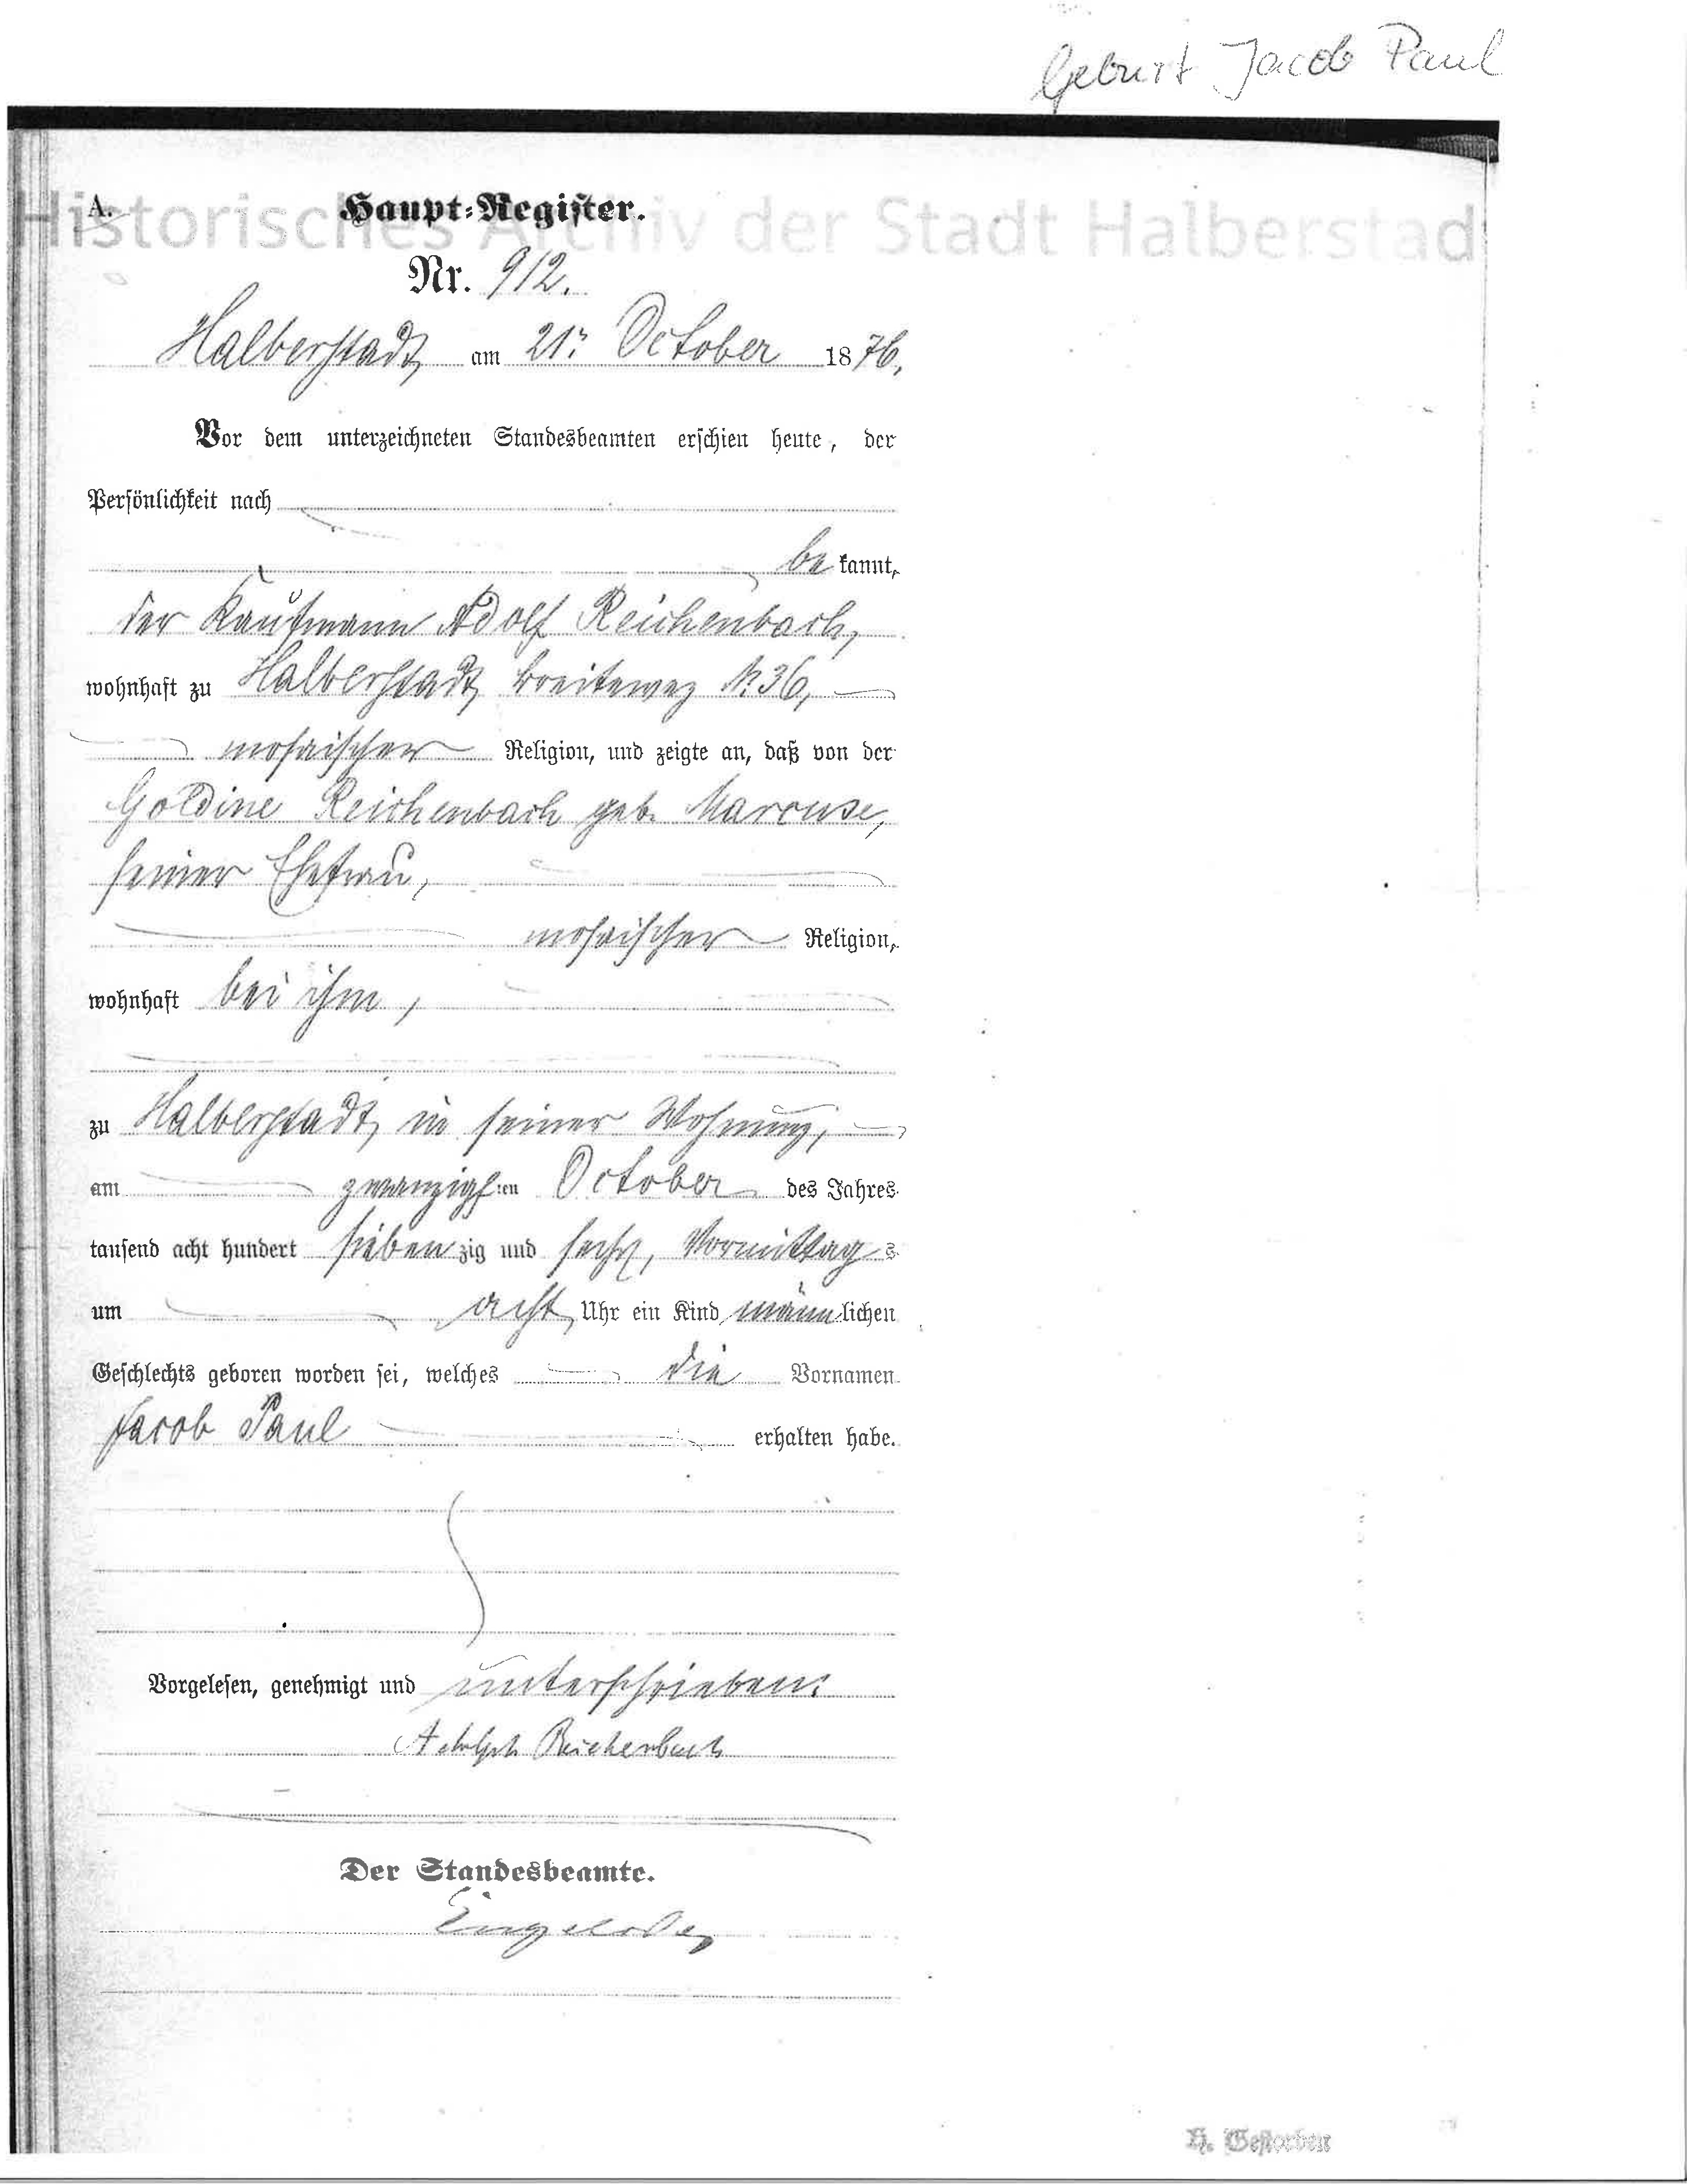 Geburt Jacob Paul
Historisches Archiv der Stadt Halberstad
A.
Haupt-Register.
Nr. 912.
Halberstadt am 21. October 1876.
Vor dem unterzeichneten Standesbeamten erschien heute, der
Persönlichkeit nach
be kannt,
der Kaufmann Adolf Reichenbach,
wohnhaft zu Halberstadt, Breiteweg № 36,
mosaischer Religion, und zeigte an, daß von der
Goldine Reichenbach geb. Marcuse,
seiner Ehefrau,
mosaischer Religion,
wohnhaft bei ihm,
zu Halberstadt, in seiner Wohnung,
am zwanzigsten October des Jahres
tausend acht hundert siebenzig und sechs, Vormittags
um acht Uhr ein Kind männlichen
Geschlechts geboren worden sei, welches die Vornamen
Jacob Paul erhalten habe.
Vorgelesen, genehmigt und unterschrieben:
Adolph Reichenbach
Der Standesbeamte.